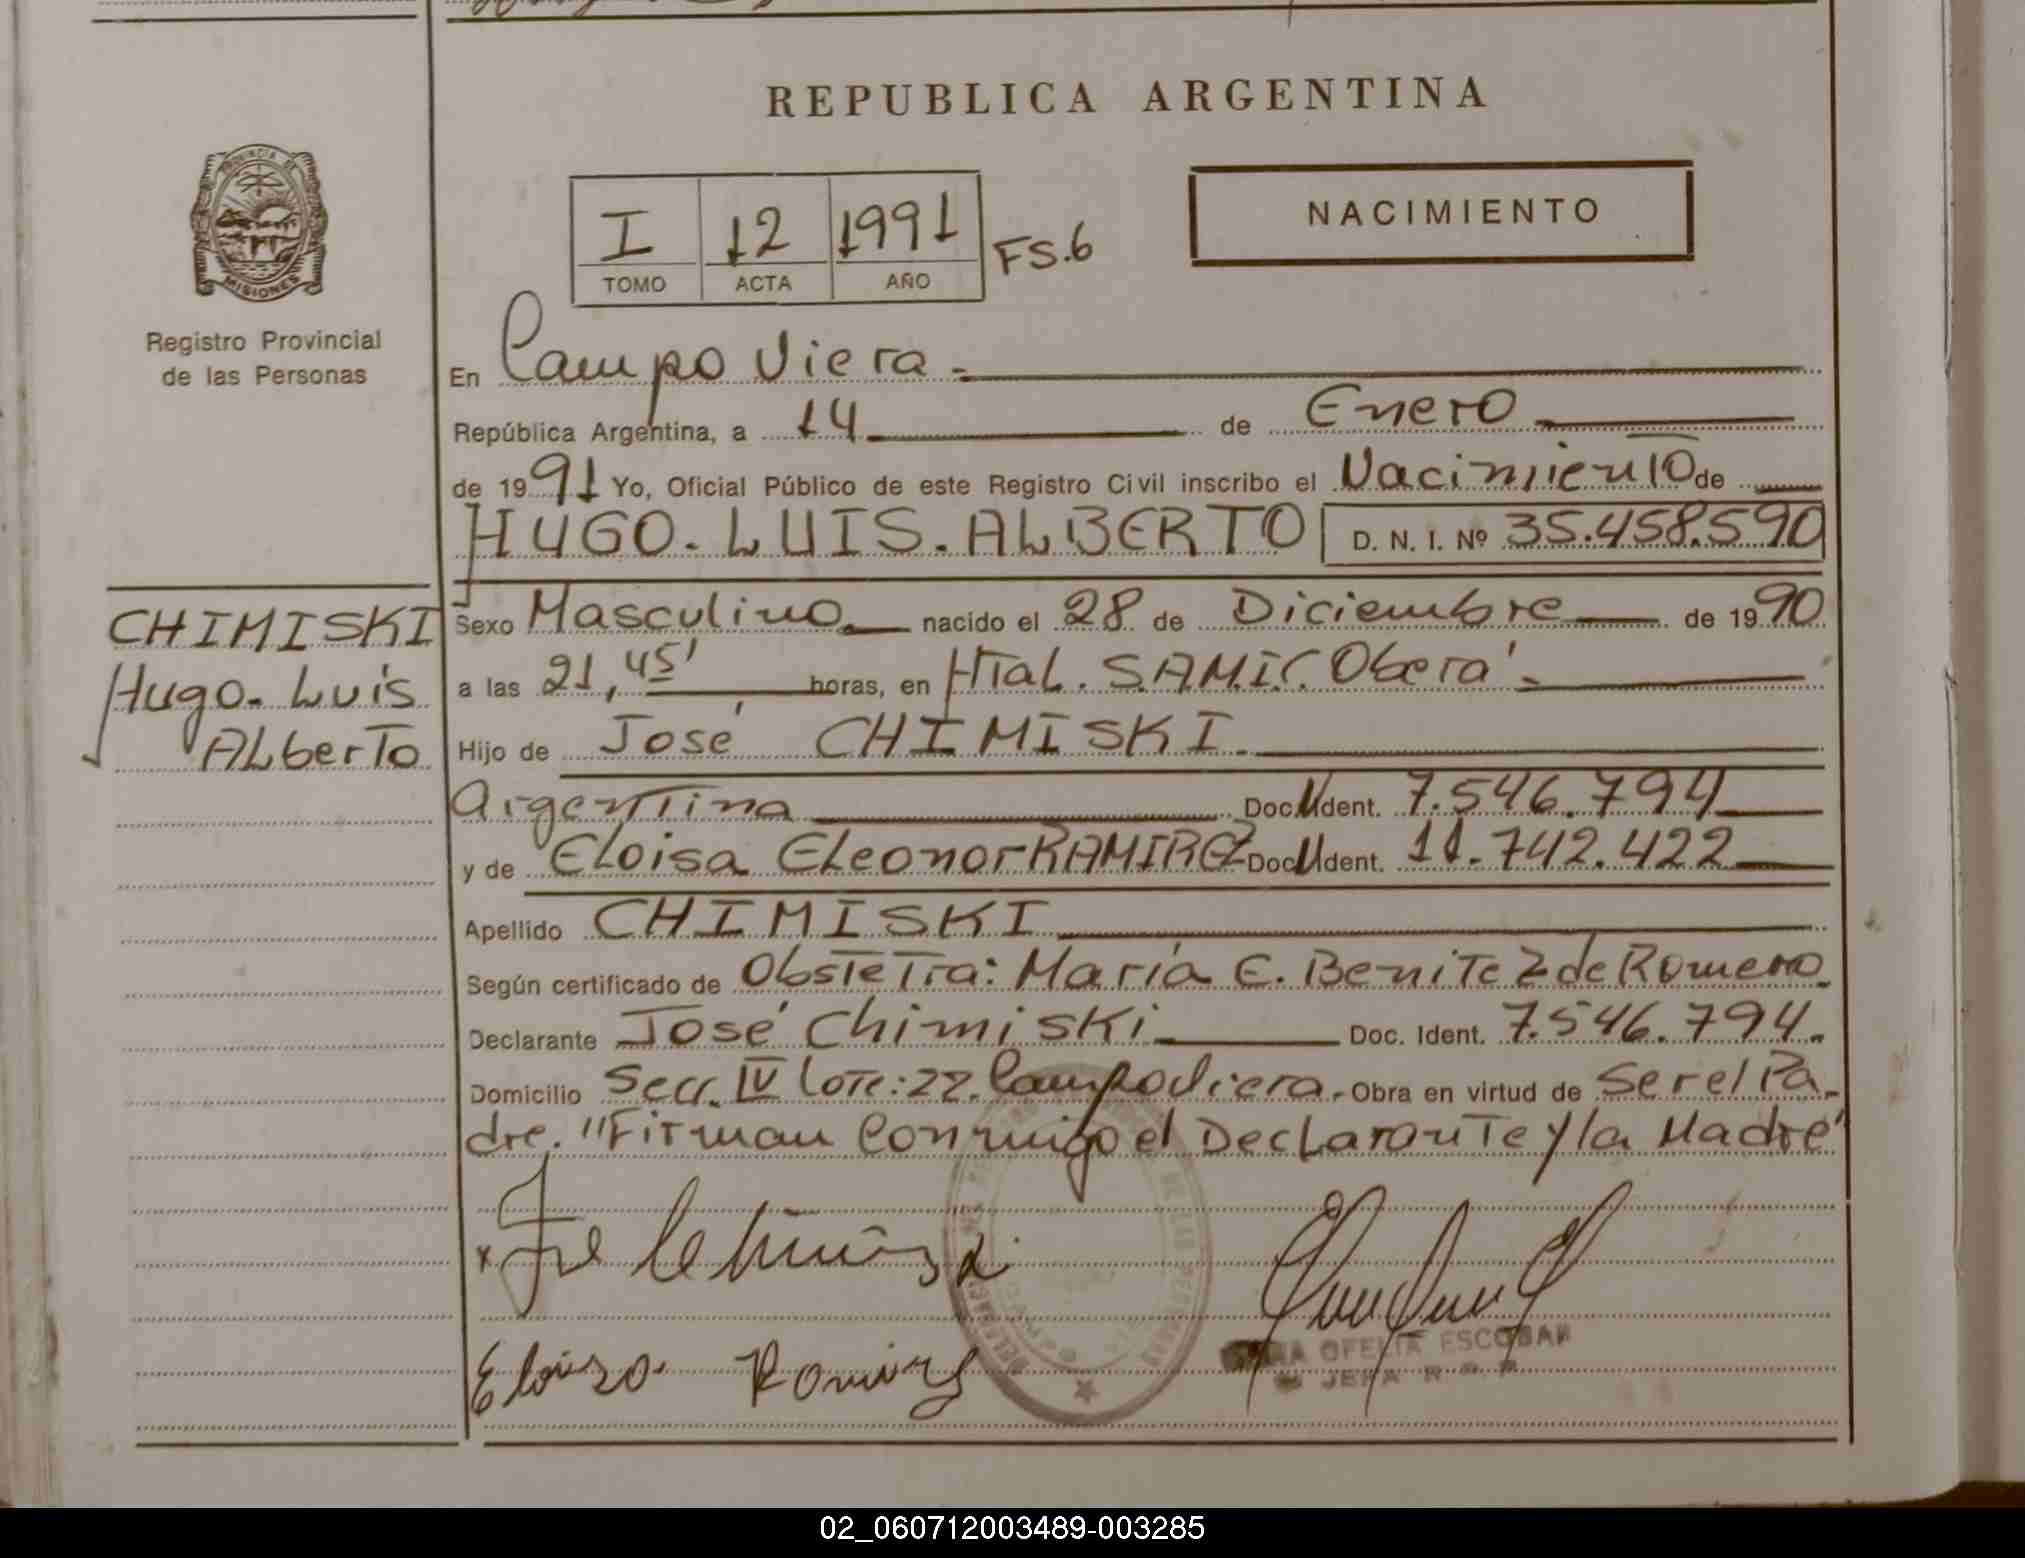 REPUBLICA ARGENTINA
PROVINCIA DE
MISIONES
Registro Provincial
de las Personas
I 12 1991 FS.6
TOMO ACTA AÑO
NACIMIENTO
En Campo Viera.-
República Argentina, a 14 de Enero
de 1991 Yo, Oficial Público de este Registro Civil inscribo el Nacimiento de
HUGO. LUIS. ALBERTO D. N. I. Nº 35.458.590
CHIMISKI
Hugo. Luis
Alberto
Sexo Masculino nacido el 28 de Diciembre de 1990
a las 21,45' horas, en Htal. S.A.M.I.C. Oberá.-
Hijo de José CHIMISKI.
Argentina Doc. Ident. 7.546.794
y de Eloisa Eleonor RAMIREZ Doc. Ident. 11.742.422
Apellido CHIMISKI
Según certificado de Obstetra: María E. Benitez de Romero.
Declarante José Chimiski Doc. Ident. 7.546.794.
Domicilio Secc. IV Lote: 22. Campo Viera.- Obra en virtud de Ser el Pa-
dre. "Firman Conmigo el Declarante y la Madre"
x
Eloisa Ramirez
OFELIA ESCOBAR
JEFA
02_060712003489-003285